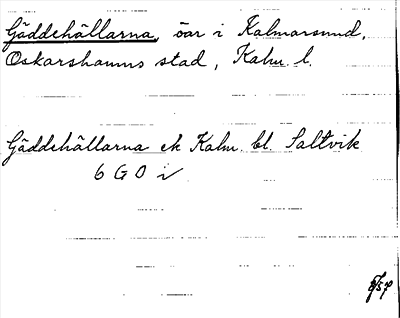 Gäddehällarna, öar i Kalmarsund,
Oskarshamns stad, Kalm. l.
Gäddehällarna ek Kalm. bl. Saltvik
6 G 0 i